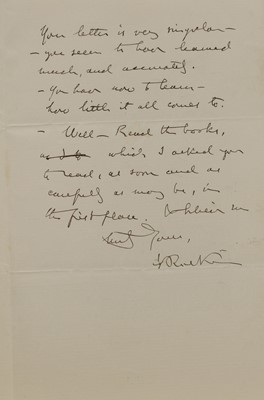 Your letter is very singular -
- you seem to have learned
much, and accurately.
- You have now to learn -
how little it all comes to.
- Well - Read the books,
which I asked you
to read, as soon and as
carefully as may be, in
the first place. & believe me
Yours,
J Ruskin